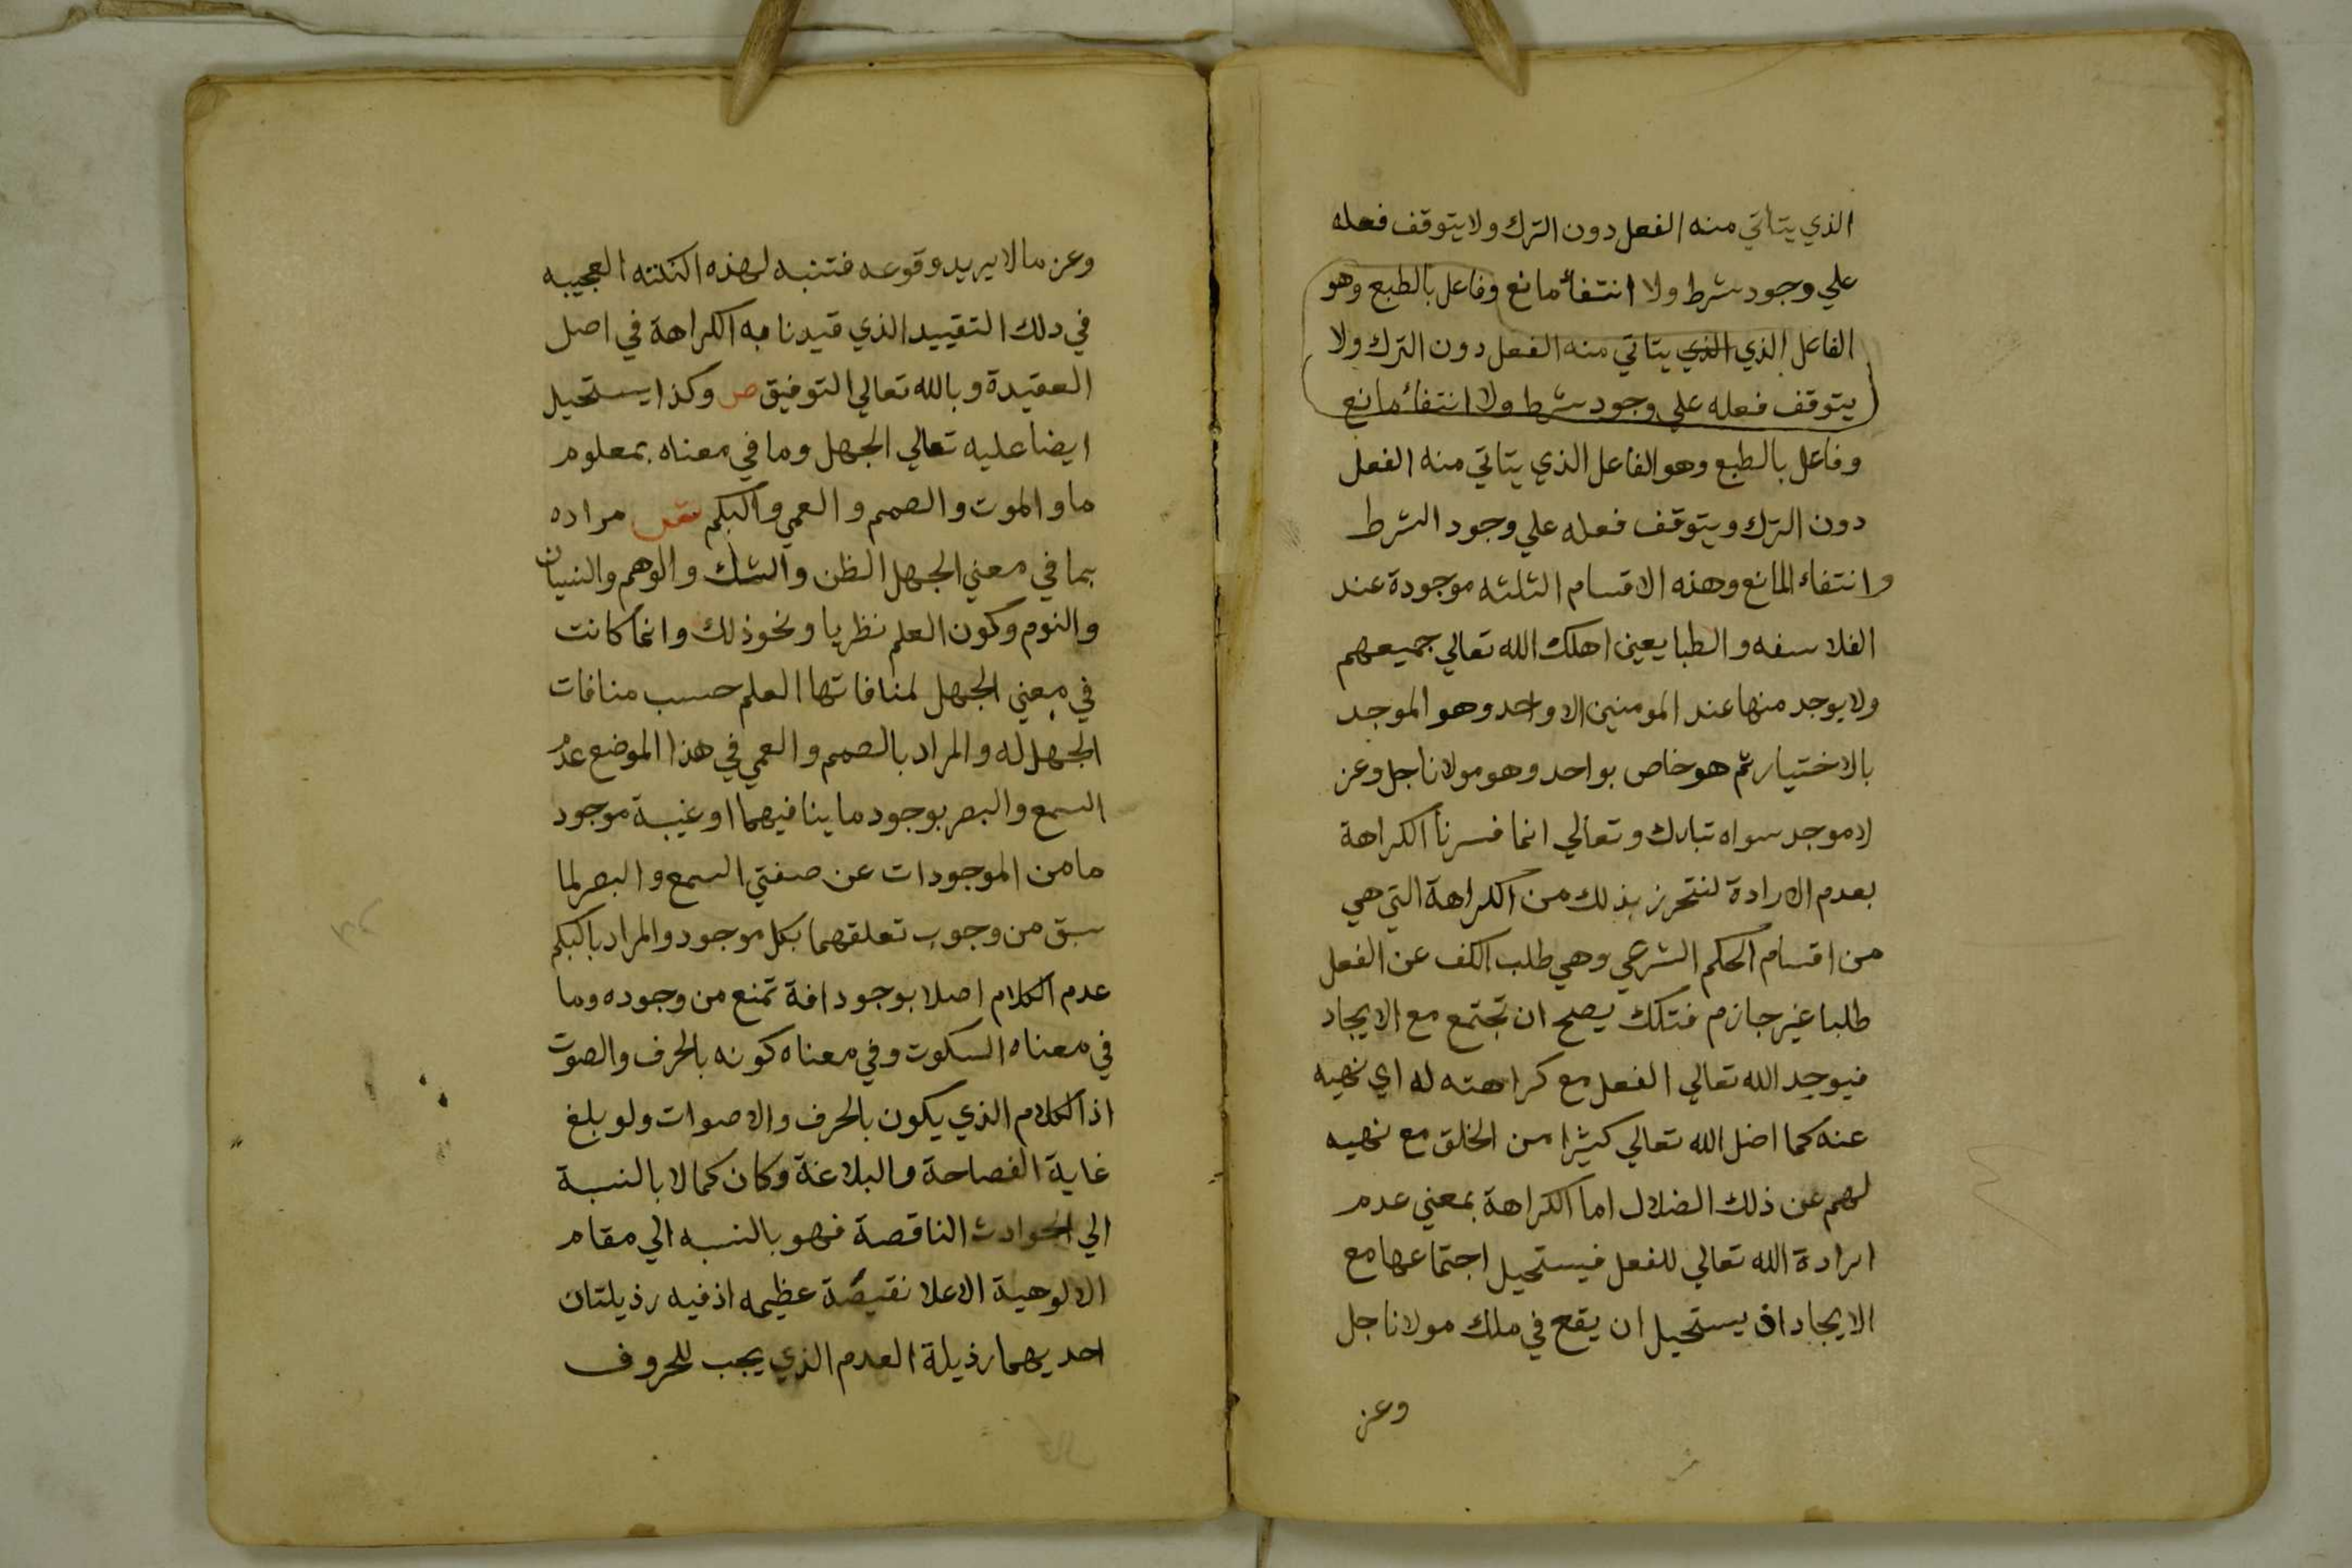 الذي يتاتي منه الفعل دون الترك ولا يتوقف فعله
علي وجود شرط ولا انتفاء مانع وفاعل بالطبع وهو
الفاعل الذي الذي يتاتي منه الفعل دون الترك ولا
يتوقف فعله علي وجود شرط ولا انتفاء مانع
وفاعل بالطبع وهو الفاعل الذي يتاتي منه الفعل
دون الترك ويتوقف فعله علي وجود الشرط
وانتفاء المانع وهذه الاقسام الثلثه موجودة عند
الفلاسفه والطبايعين اهلك الله تعالي جميعهم
ولا يوجد منها عند المومنين الا واحد وهو الموجد
بالاختيار ثم هو خاص بواحد وهو مولانا جل وعز
لا موجد سواه تبارك وتعالي انما فسرنا الكراهة
بعدم الارادة لنتحرز بذلك من الكراهة التي هي
من اقسام الحكم الشرعي وهي طلب الكف عن الفعل
طلبا غير جازم فتلك يصح ان تجتمع مع الايجاد
فيوجد الله تعالي الفعل مع كراهته له اي نهيه
عنه كما اضل الله تعالي كثيرا من الخلق مع نهيه
لهم عن ذلك الضلال اما الكراهة بمعني عدم
ارادة الله تعالي للفعل فيستحيل اجتماعها مع
الايجاد اذ يستحيل ان يقع في ملك مولانا جل
وعز
وعز ما لا يريد وقوعه فتنبه لهذه النكته العجيبه
في ذلك التقييد الذي قيدنا به الكراهة في اصل
العقيدة وبالله تعالي التوفيق ص وكذا يستحيل
ايضا عليه تعالي الجهل وما في معناه بمعلوم
ما والموت والصمم والعمي والبكم مراده
بما في معني الجهل الظن والشك والوهم والنسيان
والنوم وكون العلم نظريا ونحو ذلك وانما كانت
في معني الجهل لمنافاتها العلم حسب منافات
الجهل له والمراد بالصمم والعمي في هذا الموضع عدم
السمع والبصر بوجود ما ينافيهما او غيبة موجود
ما من الموجودات عن صفتي السمع والبصر لما
سبق من وجوب تعلقهما بكل موجود والمراد بالبكم
عدم الكلام اصلا بوجود افة تمنع من وجوده وما
في معناه السكوت وفي معناه كونه بالحرف والصوت
اذ الكلام الذي يكون بالحرف والاصوات ولو بلغ
غاية الفصاحة والبلاغة وكان كمالا بالنسبة
الي الحوادث الناقصة فهو بالنسبه الي مقام
الالوهية الاعلا نقيصة عظيمه اذ فيه رذيلتان
احديهما رذيلة العدم الذي يجب للحروف